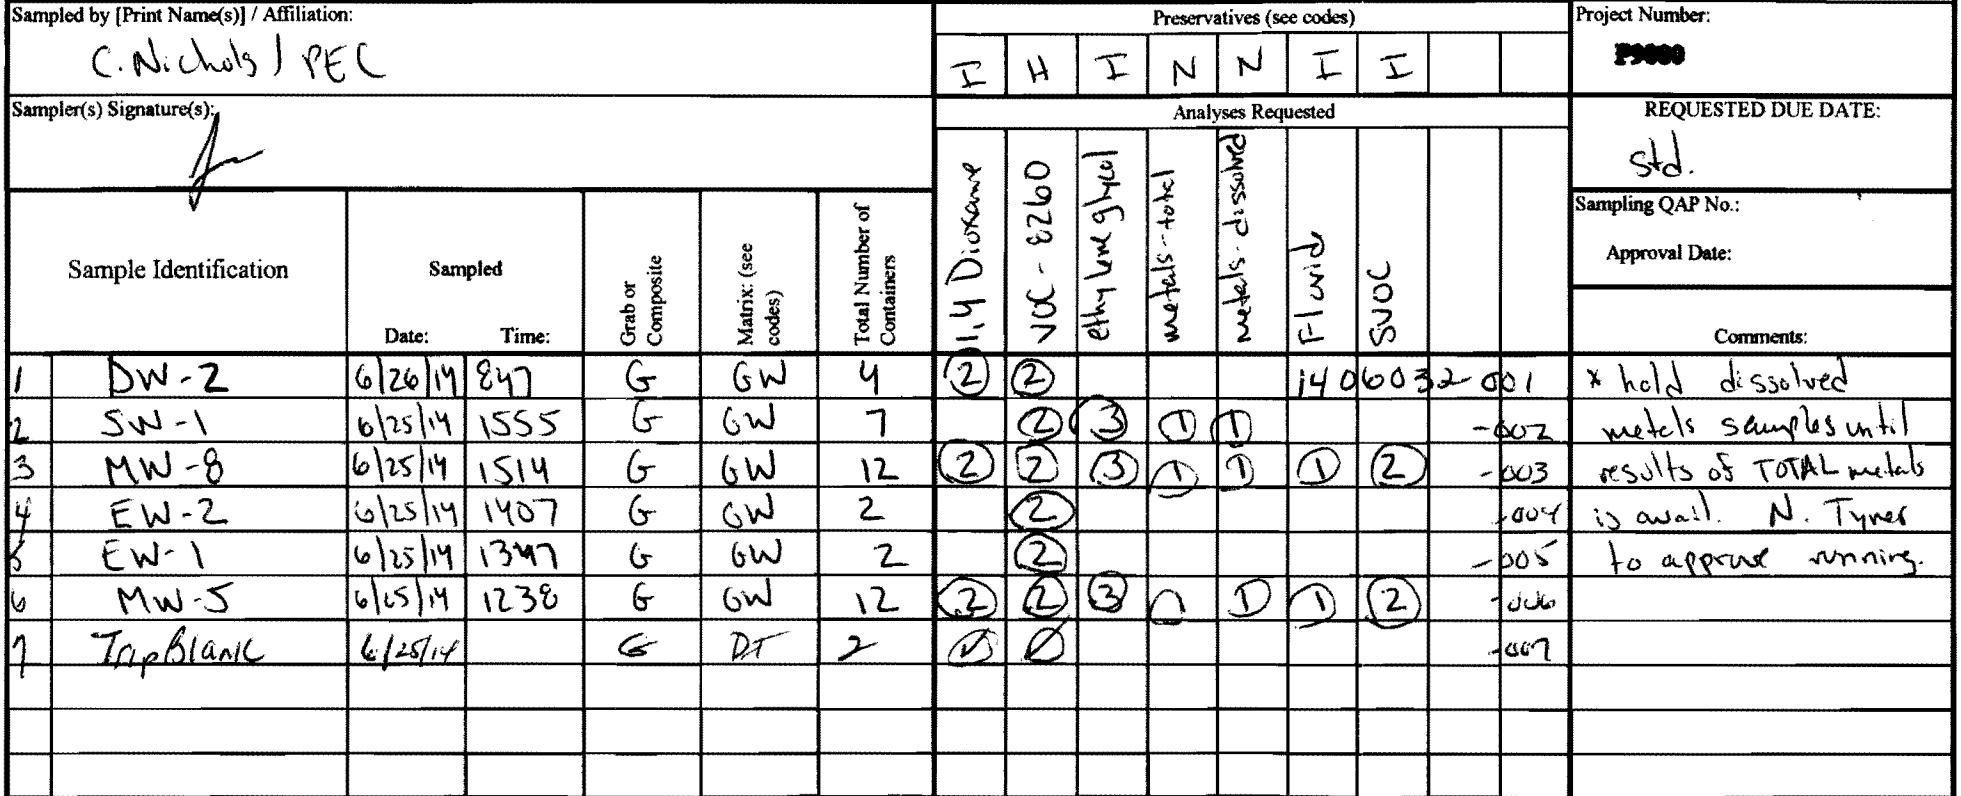 Sampled by [Print Name(s)] / Affiliation:
C. Nichols / PEC
Preservatives (see codes)
I H I N N I I
Project Number:
P9000
Sampler(s) Signature(s):
Analyses Requested
REQUESTED DUE DATE:
std.
Sampling QAP No.:
Approval Date:
Sample Identification
Sampled
Date: Time:
Grab or Composite
Matrix: (see codes)
Total Number of Containers
1,4 Dioxane
VOC - 8260
ethylene glycol
metals - total
metals - dissolved
Fluorid
SVOC
Comments:
1 DW-2 6/26/14 847 G GW 4 2 2 1406032-001 * hold dissolved
2 SW-1 6/25/14 1555 G GW 7 2 3 1 1 -002 metals samples until
3 MW-8 6/25/14 1514 G GW 12 2 2 3 1 1 1 2 -003 results of TOTAL metals
4 EW-2 6/25/14 1407 G GW 2 2 -004 is avail. N. Tyner
5 EW-1 6/25/14 1347 G GW 2 2 -005 to approve running.
6 MW-5 6/25/14 1238 G GW 12 2 2 3 1 1 1 2 -006
7 Trip Blank 6/25/14 G DT 2 -007